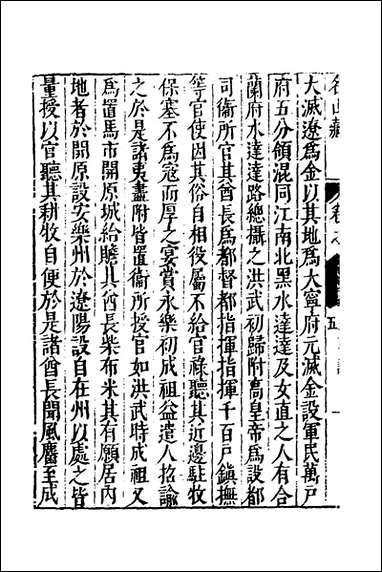 名山藏
大滅遼爲金以其地爲大寧府元滅金設軍民萬戸
府五分領混同江南北黑水達達及女直之人有合
蘭府水達達路總攝之洪武初歸附高皇帝爲設都
司衛所官其酋長爲都督都指揮指揮千百戸鎮撫
等官使因其俗自相役屬不給官祿聽其近邊駐牧
保塞不爲寇而厚之宴賞永樂初成祖益遣人招諭
之於是諸夷盡附皆置衛所授官如洪武時成祖又
爲置馬市開原城給贍其酋長柴布米其有願居内
地者於開原設安樂州於遼陽設自在州以處之皆
量授以官聽其耕牧自便於是諸酋長聞風麕至成